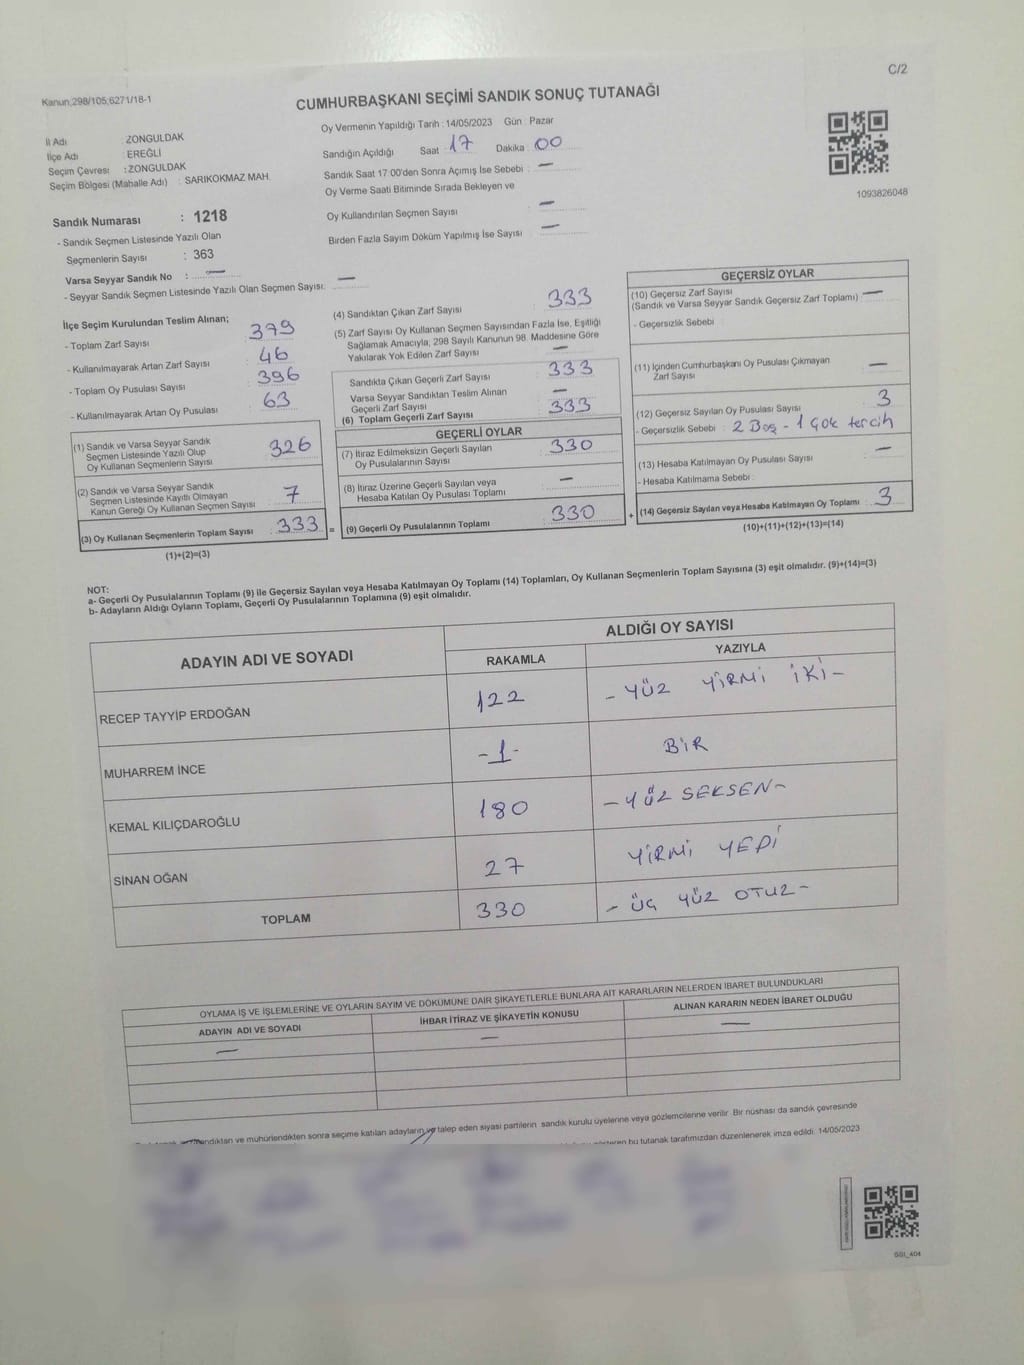 C/2
Kanun;298/105;6271/18-1
CUMHURBAŞKANI SEÇİMİ SANDIK SONUÇ TUTANAĞI
İl Adı : ZONGULDAK
İlçe Adı : EREĞLİ
Seçim Çevresi : ZONGULDAK
Seçim Bölgesi (Mahalle Adı) : SARIKOKMAZ MAH.
Sandık Numarası : 1218
- Sandık Seçmen Listesinde Yazılı Olan
Seçmenlerin Sayısı : 363
Varsa Seyyar Sandık No : —
- Seyyar Sandık Seçmen Listesinde Yazılı Olan Seçmen Sayısı: —
Oy Vermenin Yapıldığı Tarih : 14/05/2023 Gün : Pazar
Sandığın Açıldığı Saat : 17 Dakika : 00
Sandık Saat 17:00'den Sonra Açımış İse Sebebi : —
Oy Verme Saati Bitiminde Sırada Bekleyen ve
Oy Kullandırılan Seçmen Sayısı : —
Birden Fazla Sayım Döküm Yapılmış İse Sayısı : —
1093826048
İlçe Seçim Kurulundan Teslim Alınan;
- Toplam Zarf Sayısı : 379
- Kullanılmayarak Artan Zarf Sayısı : 46
- Toplam Oy Pusulası Sayısı : 396
- Kullanılmayarak Artan Oy Pusulası : 63
(1) Sandık ve Varsa Seyyar Sandık
Seçmen Listesinde Yazılı Olup
Oy Kullanan Seçmenlerin Sayısı : 326
(2) Sandık ve Varsa Seyyar Sandık
Seçmen Listesinde Kayıtlı Olmayan
Kanun Gereği Oy Kullanan Seçmen Sayısı : 7
(3) Oy Kullanan Seçmenlerin Toplam Sayısı : 333 =
(1)+(2)=(3)
(4) Sandıktan Çıkan Zarf Sayısı : 333
(5) Zarf Sayısı Oy Kullanan Seçmen Sayısından Fazla İse, Eşitliği
Sağlamak Amacıyla; 298 Sayılı Kanunun 98. Maddesine Göre
Yakılarak Yok Edilen Zarf Sayısı : —
Sandıkta Çıkan Geçerli Zarf Sayısı : 333
Varsa Seyyar Sandıktan Teslim Alınan
Geçerli Zarf Sayısı : —
(6) Toplam Geçerli Zarf Sayısı : 333
GEÇERLİ OYLAR
(7) İtiraz Edilmeksizin Geçerli Sayılan
Oy Pusulalarının Sayısı : 330
(8) İtiraz Üzerine Geçerli Sayılan veya
Hesaba Katılan Oy Pusulası Toplamı : —
(9) Geçerli Oy Pusulalarının Toplamı : 330 +
GEÇERSİZ OYLAR
(10) Geçersiz Zarf Sayısı : —
(Sandık ve Varsa Seyyar Sandık Geçersiz Zarf Toplamı)
- Geçersizlik Sebebi :
(11) İçinden Cumhurbaşkanı Oy Pusulası Çıkmayan
Zarf Sayısı : —
(12) Geçersiz Sayılan Oy Pusulası Sayısı : 3
- Geçersizlik Sebebi : 2 Boş - 1 Çok tercih
(13) Hesaba Katılmayan Oy Pusulası Sayısı : —
- Hesaba Katılmama Sebebi :
(14) Geçersiz Sayılan veya Hesaba Katılmayan Oy Toplamı : 3
(10)+(11)+(12)+(13)=(14)
NOT:
a- Geçerli Oy Pusulalarının Toplamı (9) ile Geçersiz Sayılan veya Hesaba Katılmayan Oy Toplamı (14) Toplamları, Oy Kullanan Seçmenlerin Toplam Sayısına (3) eşit olmalıdır. (9)+(14)=(3)
b- Adayların Aldığı Oyların Toplamı, Geçerli Oy Pusulalarının Toplamına (9) eşit olmalıdır.
ADAYIN ADI VE SOYADI
ALDIĞI OY SAYISI
RAKAMLA YAZIYLA
RECEP TAYYİP ERDOĞAN 122 - YÜZ YİRMİ İKİ -
MUHARREM İNCE -1- BİR
KEMAL KILIÇDAROĞLU 180 - YÜZ SEKSEN -
SİNAN OĞAN 27 YİRMİ YEDİ
TOPLAM 330 - ÜÇ YÜZ OTUZ -
OYLAMA İŞ VE İŞLEMLERİNE VE OYLARIN SAYIM VE DÖKÜMÜNE DAİR ŞİKAYETLERLE BUNLARA AİT KARARLARIN NELERDEN İBARET BULUNDUKLARI
ADAYIN ADI VE SOYADI İHBAR İTİRAZ VE ŞİKAYETİN KONUSU ALINAN KARARIN NEDEN İBARET OLDUĞU
— — —
ve mühürlendikten sonra seçime katılan adayların ve talep eden siyasi partilerin sandık kurulu üyelerine veya gözlemcilerine verilir. Bir nüshası da sandık çevresinde
bu tutanak tarafımızdan düzenlenerek imza edildi. 14/05/2023
SSI_404